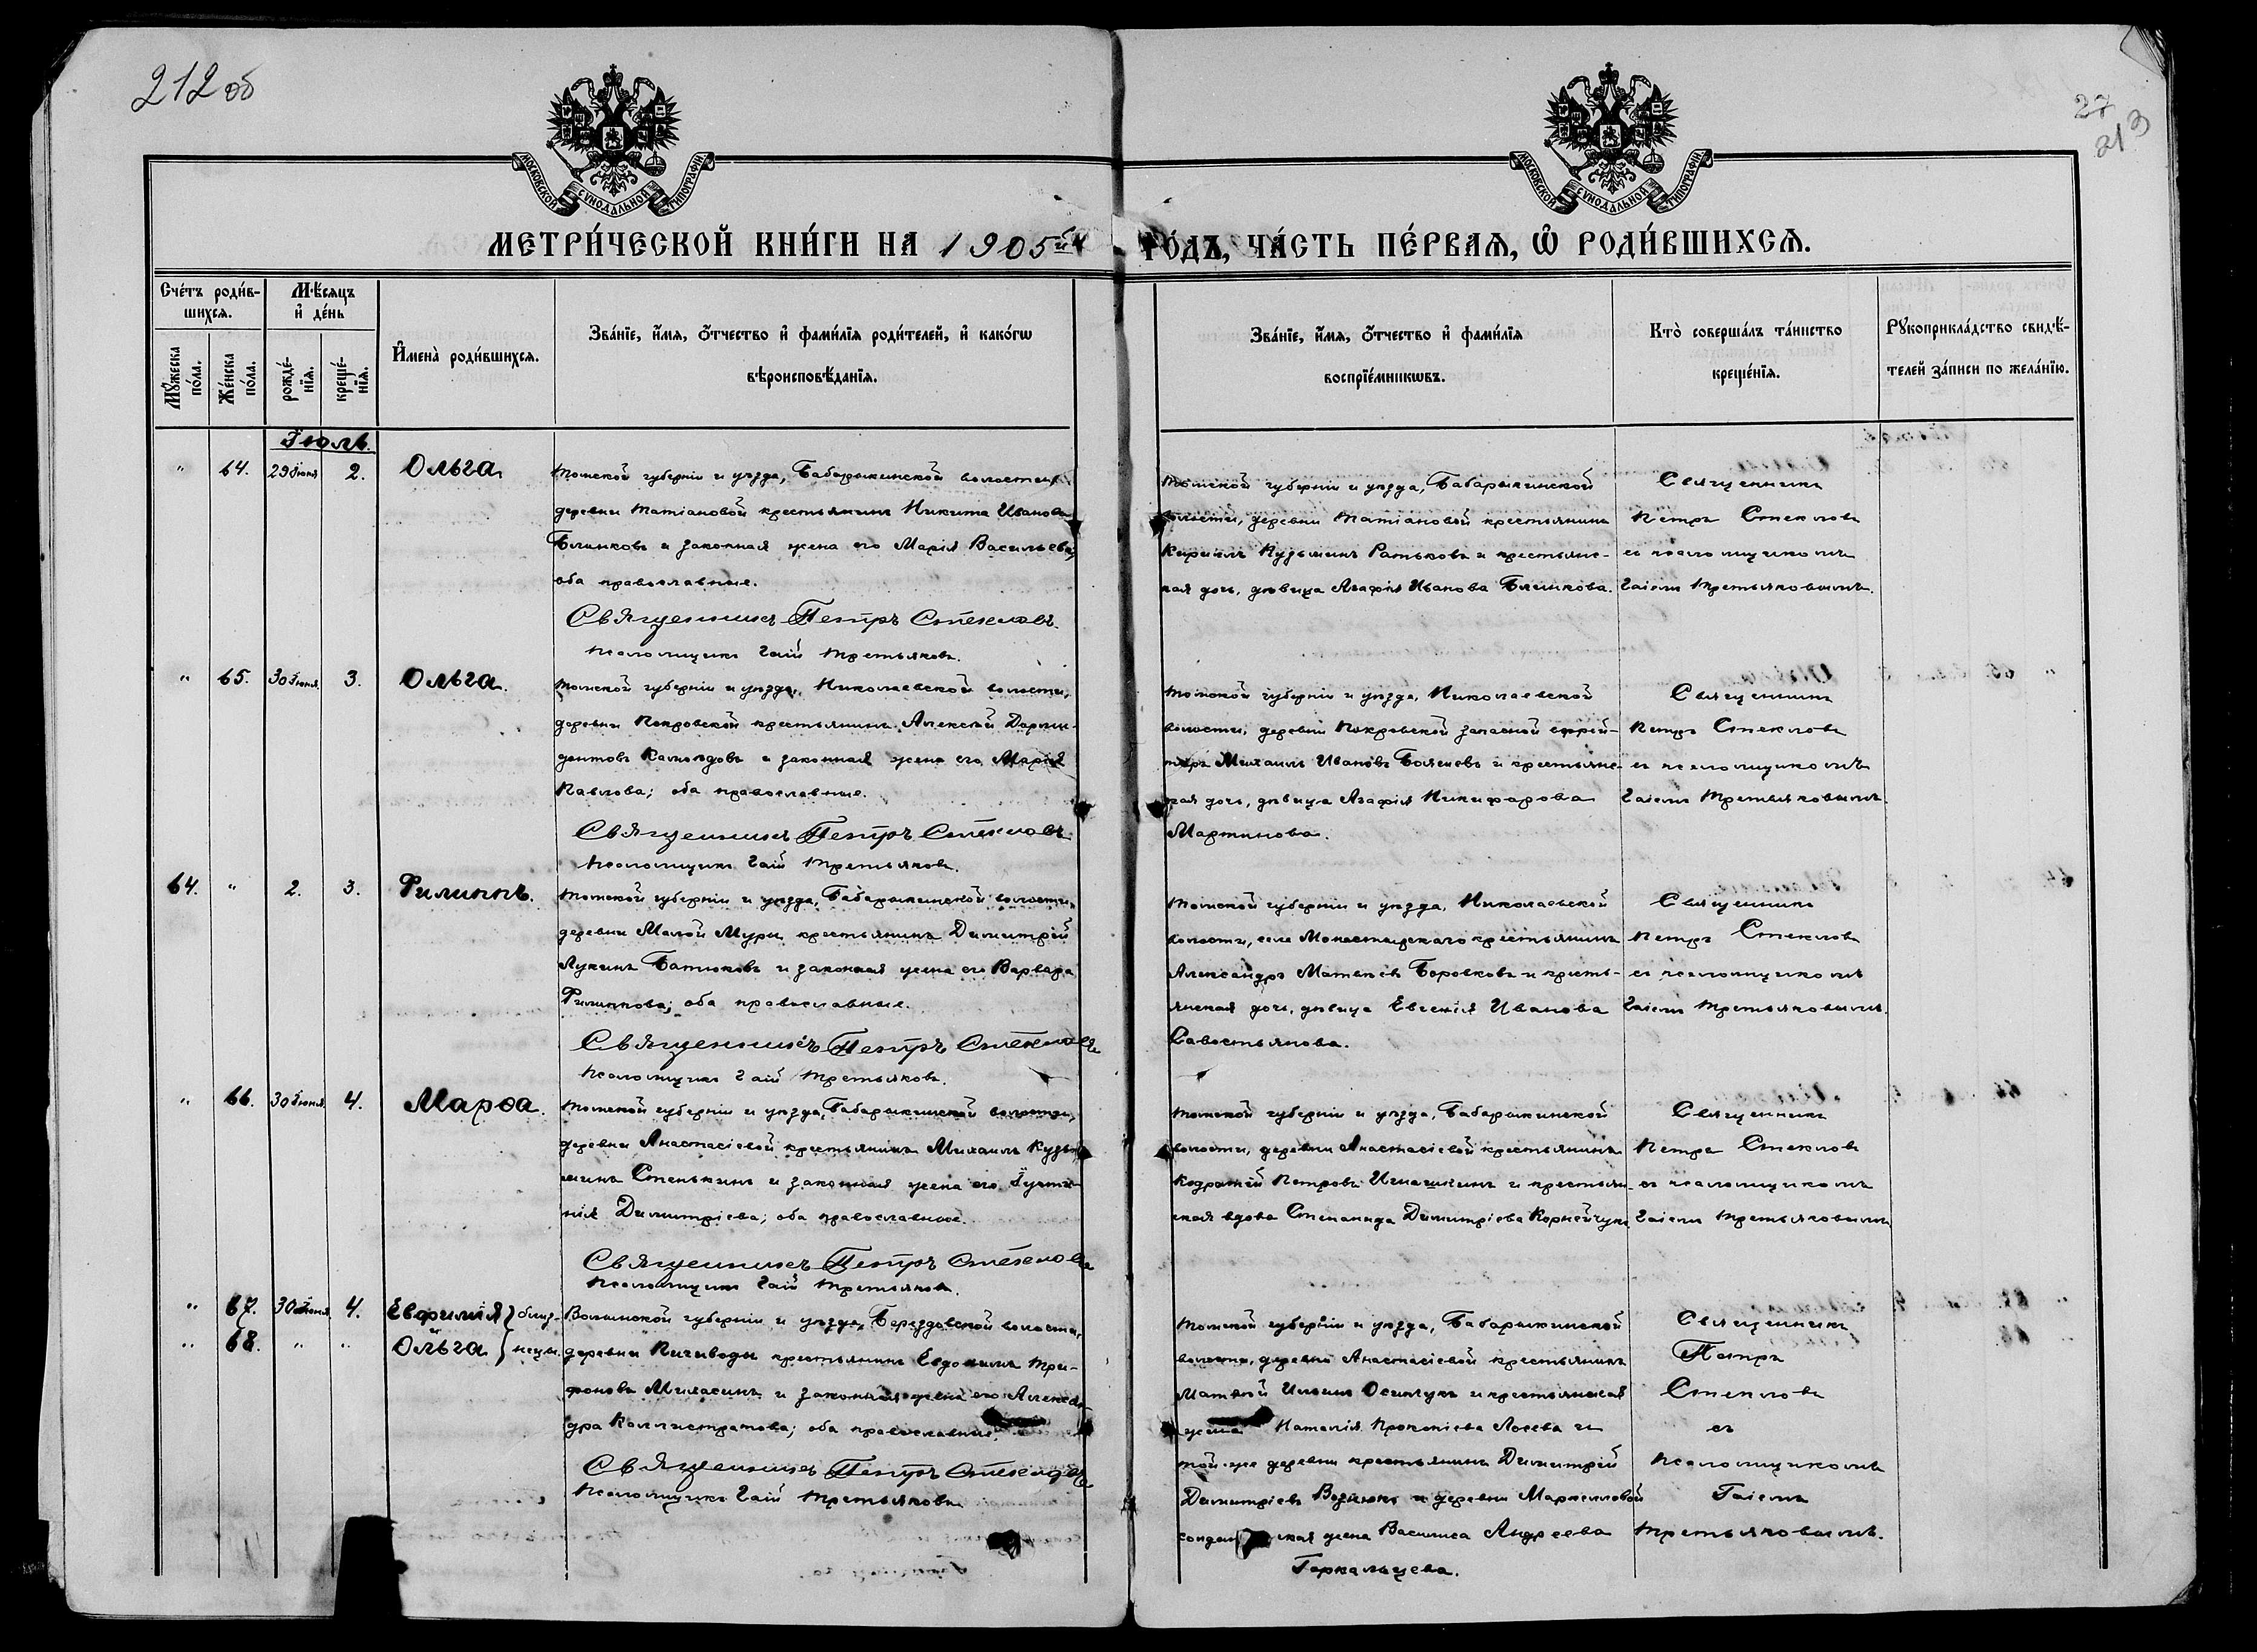 212 об
27
213
МОСКОВСКОЙ СѴНОДАЛЬНОЙ ТИПОГРАФІИ
МОСКОВСКОЙ СѴНОДАЛЬНОЙ ТИПОГРАФІИ
МЕТРИ́ЧЕСКОЙ КНИ́ГИ НА 1905й
ГО́ДЪ, ЧА́СТЬ ПЕ́РВАѦ, Ѡ҆ РОДИ́ВШИХСѦ.
Сче́тъ роди́в-
шихсѧ.
Мѣ́сѧцъ
и҆ де́нь
Мꙋ́жеска по́ла.
Же́нска по́ла.
рожде́-нїѧ.
креще́-нїѧ.
И҆мена̀ роди́вшихсѧ.
Зва́нїе, и҆́мѧ, ѻ҆́тчество и҆ фами́лїѧ роди́телей, и҆ како́гѡ
вѣроисповѣ́данїѧ.
Зва́нїе, и҆́мѧ, ѻ҆́тчество и҆ фами́лїѧ
воспрїе́мникѡвъ.
Кто̀ соверша́лъ та́инство
креще́нїѧ.
Рꙋкоприкла́дство свидѣ́-
телей за́писи по жела́нїю.
Іюль.
" 64. 29 Іюня 2. Ольга
Томской губерніи и уѣзда, Бабарыкинской волости,
деревни Татіановой крестьянинъ Никита Ивановъ
Блинковъ и законная жена его Марія Васильева,
оба православные.
Священникъ Петръ Стекловъ.
Псаломщикъ Гаій Третьяковъ.
Томской губерніи и уѣзда, Бабарыкинской
волости, деревни Татіановой крестьянинъ
Кириллъ Кузьминъ Ратьковъ и крестьянс-
кая дочь, дѣвица Агафія Иванова Блинкова.
Священникъ
Петръ Стекловъ
съ псаломщикомъ
Гаіемъ Третьяковымъ.
" 65. 30 Іюня. 3. Ольга.
Томской губерніи и уѣзда, Николаевской волости,
деревни Покровской крестьянинъ Алексѣй Дорми-
донтовъ и законная жена его Марія
Павлова; оба православные.
Священникъ Петръ Стекловъ
Псаломщикъ Гаій Третьяковъ.
Томской губерніи и уѣзда, Николаевской
волости, деревни Покровской запасной ефрей-
торъ Михаилъ Ивановъ и крестьянс-
кая дочь, дѣвица Агафія Никифорова
Мартинова.
Священникъ
Петръ Стекловъ
съ псаломщикомъ
Гаіемъ Третьяковымъ.
64. " 2. 3. Филиппъ.
Томской губерніи и уѣзда, Бабарыкинской волости,
деревни Малой Муры крестьянинъ Димитрій
Лукинъ Батюковъ и законная жена его Варвара
Филиппова; оба православные.
Священникъ Петръ Стекловъ
Псаломщикъ Гаій Третьяковъ.
Томской губерніи и уѣзда, Николаевской
волости, села Монастырскаго крестьянинъ
Александръ Матвѣевъ Боровковъ и кресть-
янская дочь, дѣвица Евгенія Иванова
Савостьянова.
Священникъ
Петръ Стекловъ
съ псаломщикомъ
Гаіемъ Третьяковымъ.
" 66. 30 Іюня 4. Марѳа.
Томской губерніи и уѣзда, Бабарыкинской волости,
деревни Анастасіевой крестьянинъ Михаилъ Кузь-
минъ Стенькинъ и законная жена его Іусти-
нія Димитріева; оба православные.
Священникъ Петръ Стекловъ
Псаломщикъ Гаій Третьяковъ.
Томской губерніи и уѣзда, Бабарыкинской
волости, деревни Анастасіевой крестьянинъ
Кодратій Петровъ Игнашкинъ и крестьян-
ская вдова Степанида Димитріева Корнейчукъ.
Священникъ
Петръ Стекловъ
съ псаломщикомъ
Гаіемъ Третьяковымъ
" 67. 30 Іюня 4. Евфимія } близ-
" 68. " " Ольга } нецы.
Волынской губерніи и уѣзда, Берездовской волости,
деревни Пичиводы крестьянинъ Евдокимъ Три-
фоновъ и законная жена его Алексан-
дра Каллистратова; оба православные.
Священникъ Петръ Стекловъ
Псаломщикъ Гаій Третьяковъ
Томской губерніи и уѣзда, Бабарыкинской
волости, деревни Анастасіевой крестьянинъ
Матвѣй Ильинъ Осипчукъ и крестьянская
жена Наталія Прокопіева Лосева и
той-же деревни крестьянинъ Димитрій
Димитріевъ Вознюкъ и деревни Маркелловой
солдатская жена Василиса Андреева
Горкальцева.
Священникъ
Петръ
Стекловъ
съ
Псаломщикомъ
Гаіемъ
Третьяковымъ.